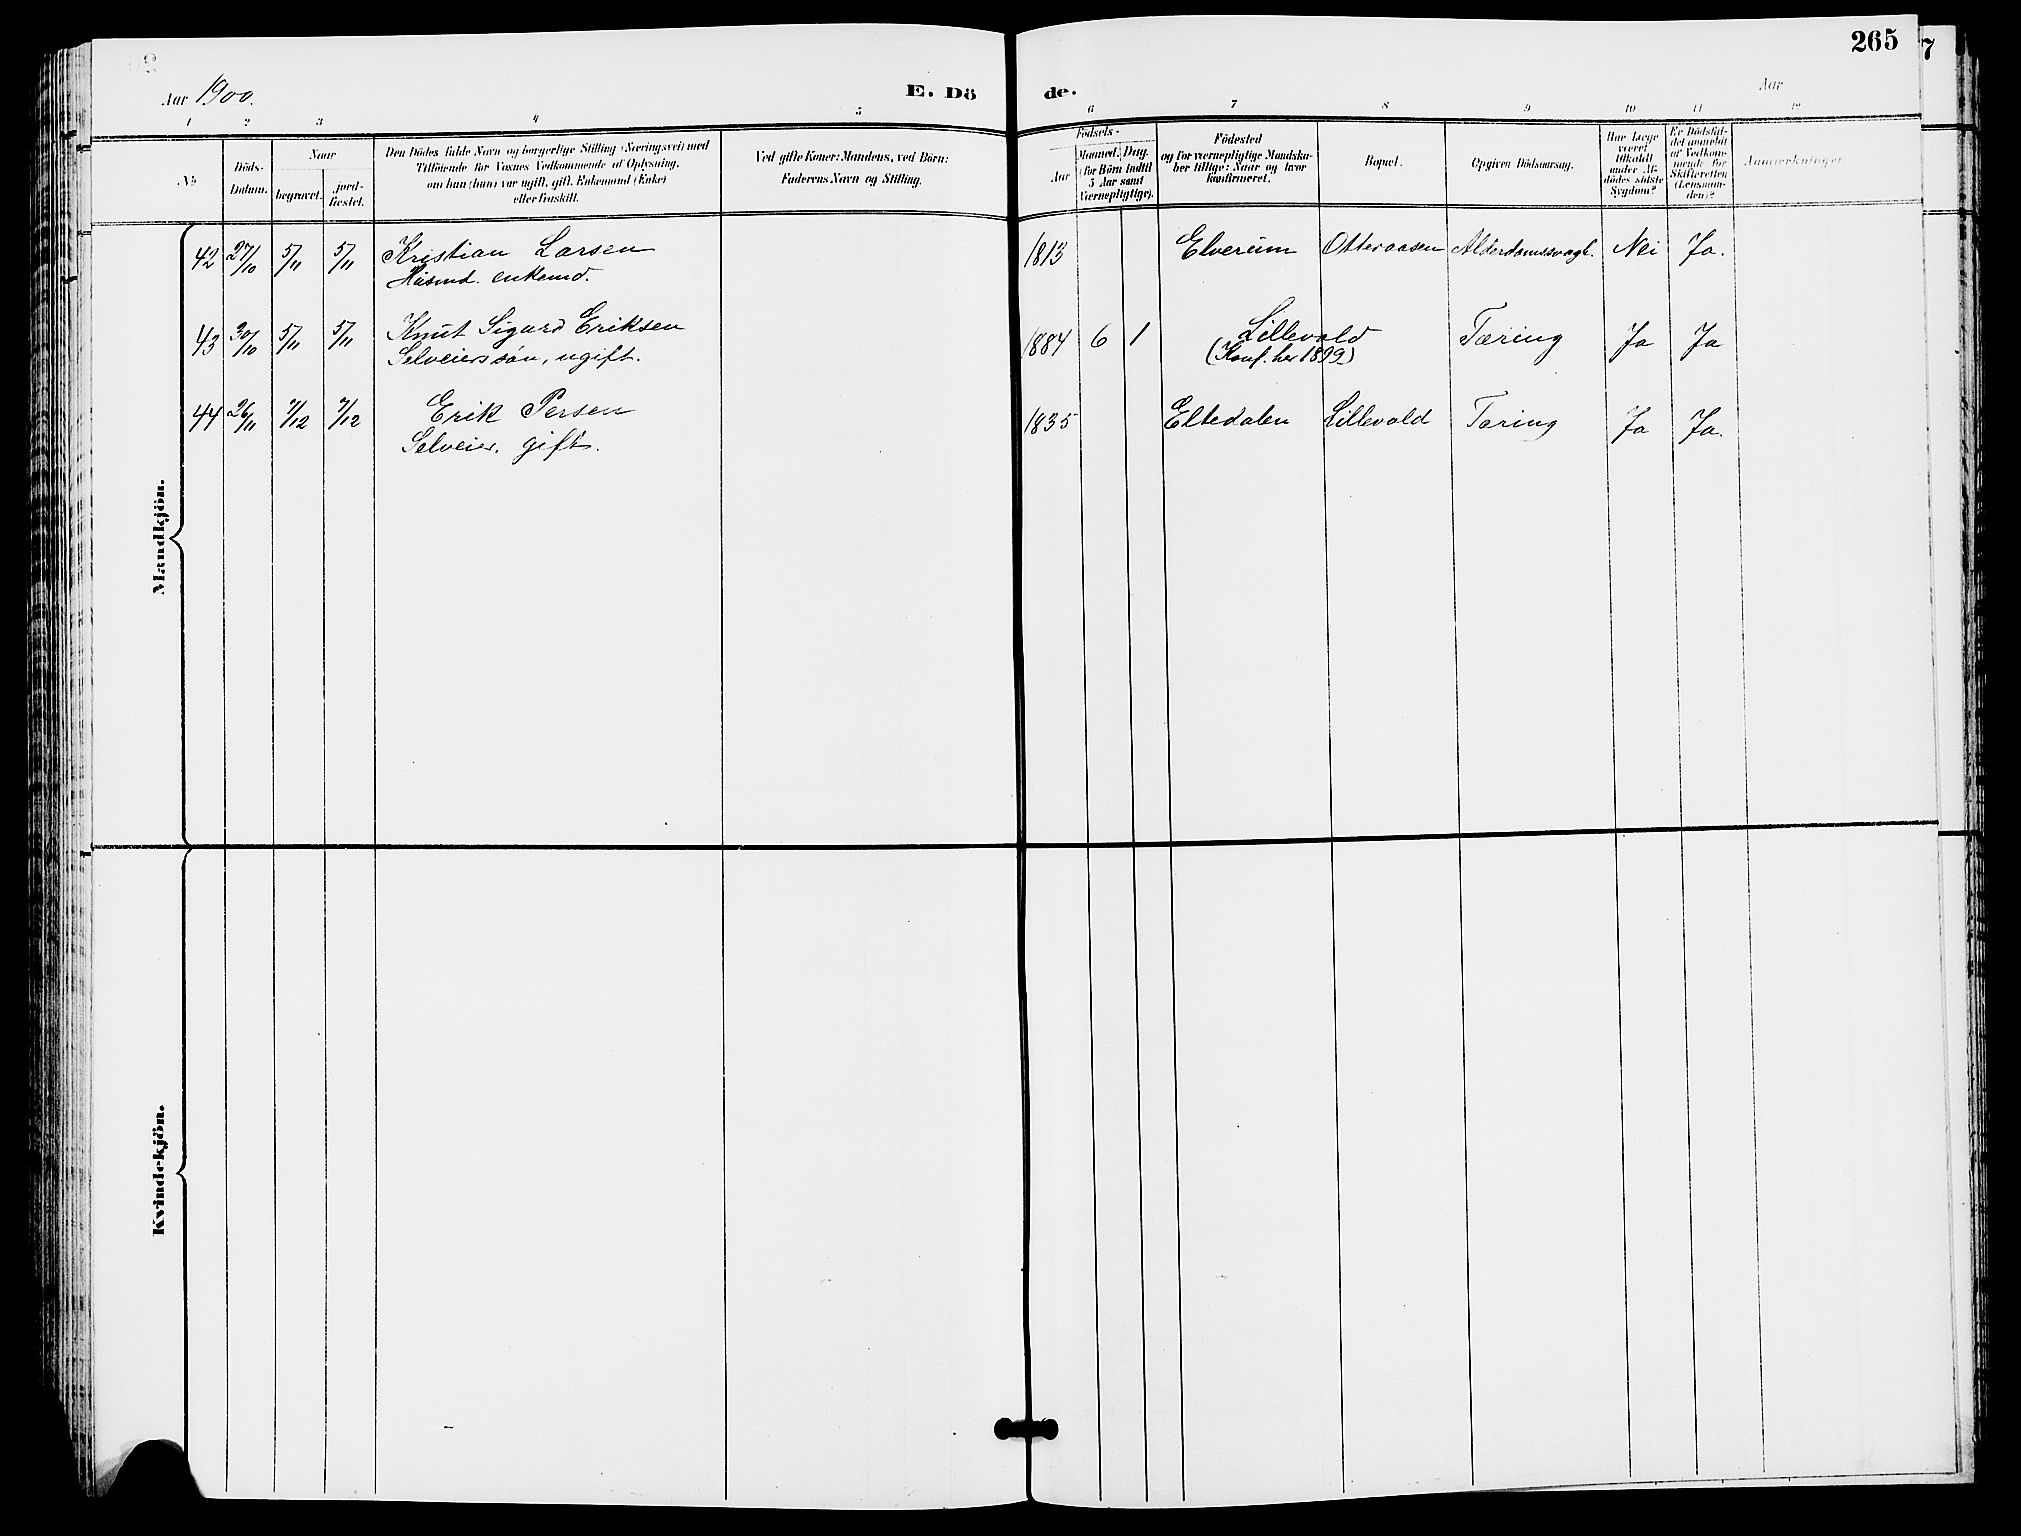 265
7
Aar 1900.
E. Dö de.
Aar
1 2 3 4 5 6 7 8 9 10 11 12
No
Döds-
Datum.
Naar
begravet.
jord-
fæstet.
Den Dödes fulde Navn og borgerlige Stilling (Næringsvei) med
Tilföiende for Voxnes Vedkommende af Oplysning,
om han (hun) var ugift, gift, Enkemand (Enke)
eller fraskilt.
Ved gifte Koner: Mandens, ved Börn:
Faderens Navn og Stilling.
Födsels-
Aar
Maaned. Dag.
(for Börn indtil
5 Aar samt
Værnepligtige).
Födested
og for værnepligtige Mandska-
ber tillige: Naar og hvor
konfirmeret.
Bopæl.
Opgiven Dödsaarsag.
Har Læge
været
tilkaldt
under Af-
dödes sidste
Sygdom?
Er Dödsfal-
det anmeldt
af Vedkom-
mende for
Skifteretten
(Lensman-
den)?
Anmærkninger
Mandkjön.
42 27/10 5/11 5/11 Kristian Larsen 1813 Elverum Otteraasen Alderdomssvagh. Nei Ja.
Husmd. enkemd.
43 30/10 5/11 5/11 Knut Sigurd Eriksen 1884 6 1 Lillevold Tæring Ja Ja
Selveierssøn, ugift. (Konf. her 1899)
44 26/11 7/12 7/12 Erik Persen 1835 Eltedalen Lillevold Tæring Ja Ja.
Selveier. gift.
Kvindekjön.